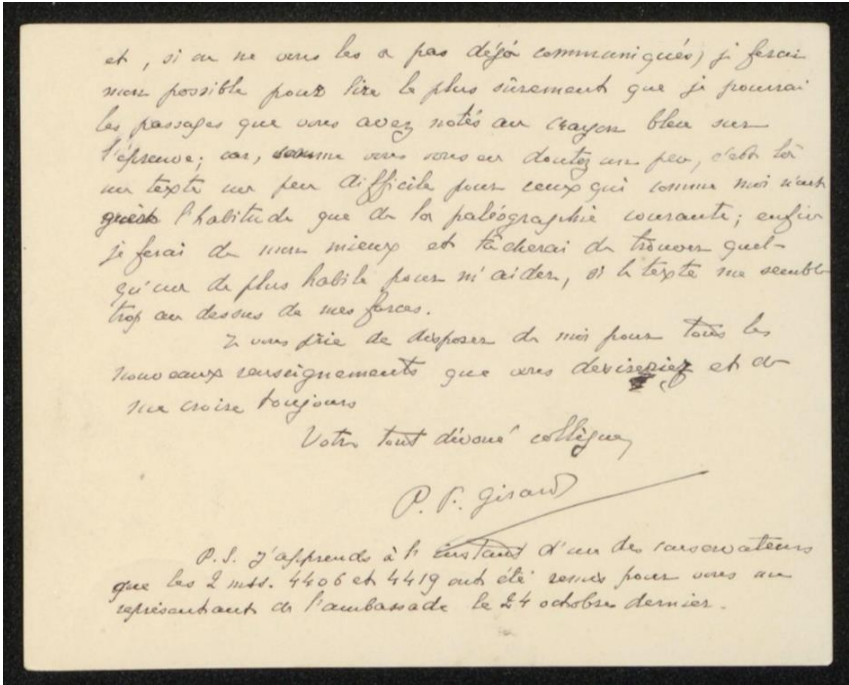 et, si on ne vous les a pas déjà communiqués) je ferai
mon possible pour lire le plus sûrement que je pourrai
les passages que vous avez notés au crayon bleu sur
l'épreuve; car, comme vous vous en doutez un peu, c'est là
un texte un peu difficile pour ceux qui comme moi n'ont
l'habitude que de la paléographie courante; enfin
je ferai de mon mieux et tâcherai de trouver quel-
qu'un de plus habile pour m'aider, si le texte me semble
trop au dessus de mes forces.
Je vous prie de disposer de moi pour tous les
nouveaux renseignements que vous desireriez et de
me croire toujours
Votre tout dévoué collègue,
P. F. Girard
P.S. J'apprends à l'instant d'un des conservateurs
que les 2 mss. 4406 et 4419 ont été remis pour vous au
représentant de l'ambassade le 24 octobre dernier.